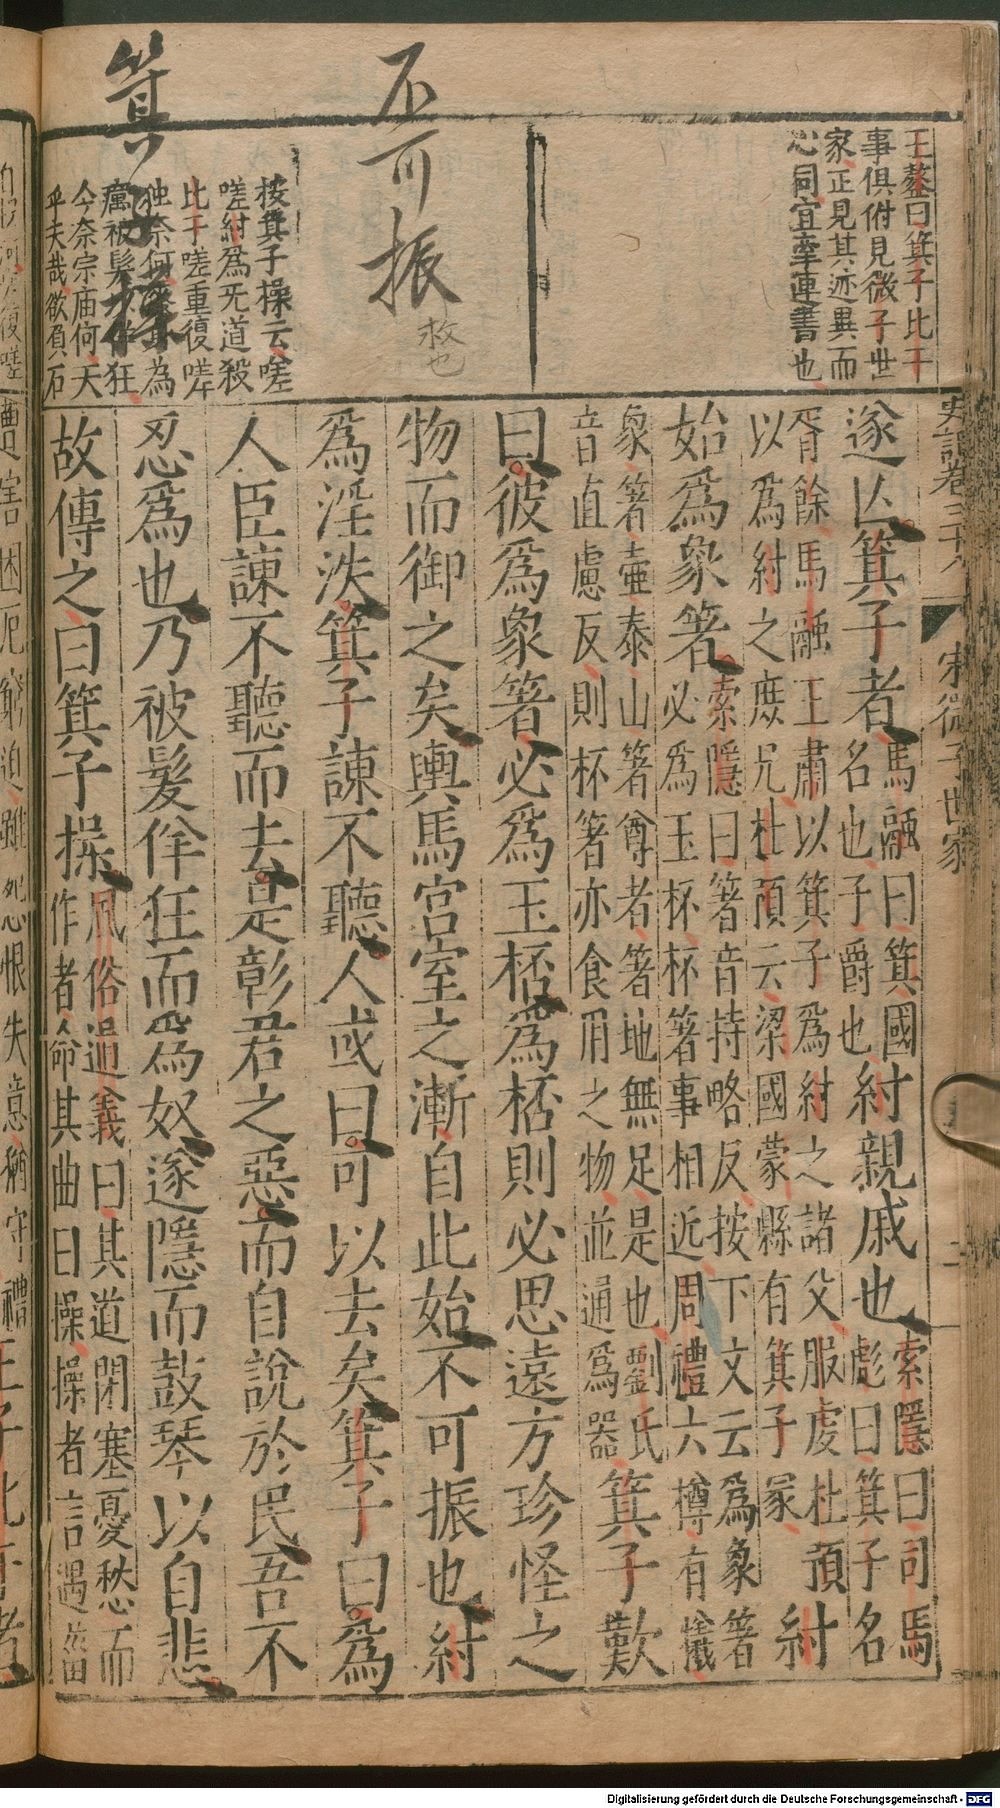 王鏊曰箕子比干
事俱附見微子世
家正見其迹異而
心同宜牽連書也
不可振
救也
箕子操
按箕子操云嗟
嗟紂爲无道殺
比干嗟重復嗟
独奈何
癘被髮 狂
今奈宗庙何天
乎天哉欲負石
史記卷三十八 宋微子世家 二
遂囚箕子者馬融曰箕國名也子爵也紂親戚也索隱曰司馬彪曰箕子名
胥餘馬融王肅以箕子爲紂之諸父服虔杜預以爲紂之庶兄杜預云梁國蒙縣有箕子冢紂
始爲象箸索隱曰箸音持略反按下文云爲象箸必爲玉杯杯箸事相近周禮六樽有犧
象箸壷泰山箸尊者箸地無足是也劉氏音直慮反則杯箸亦食用之物並通爲器箕子歎
曰彼爲象箸必爲玉桮爲桮則必思遠方珍怪之
物而御之矣輿馬宮室之漸自此始不可振也紂
爲淫泆箕子諫不聽人或曰可以去矣箕子曰爲
人臣諫不聽而去是彰君之惡而自說於民吾不
忍爲也乃被髮佯狂而爲奴遂隱而鼓琴以自悲
故傳之曰箕子操風俗通義曰其道閉塞憂愁而作者命其曲曰操操者言遇菑
遭害困厄窮迫雖怨恨失意猶守禮 王子比干者
Digitalisierung gefördert durch die Deutsche Forschungsgemeinschaft - DFG